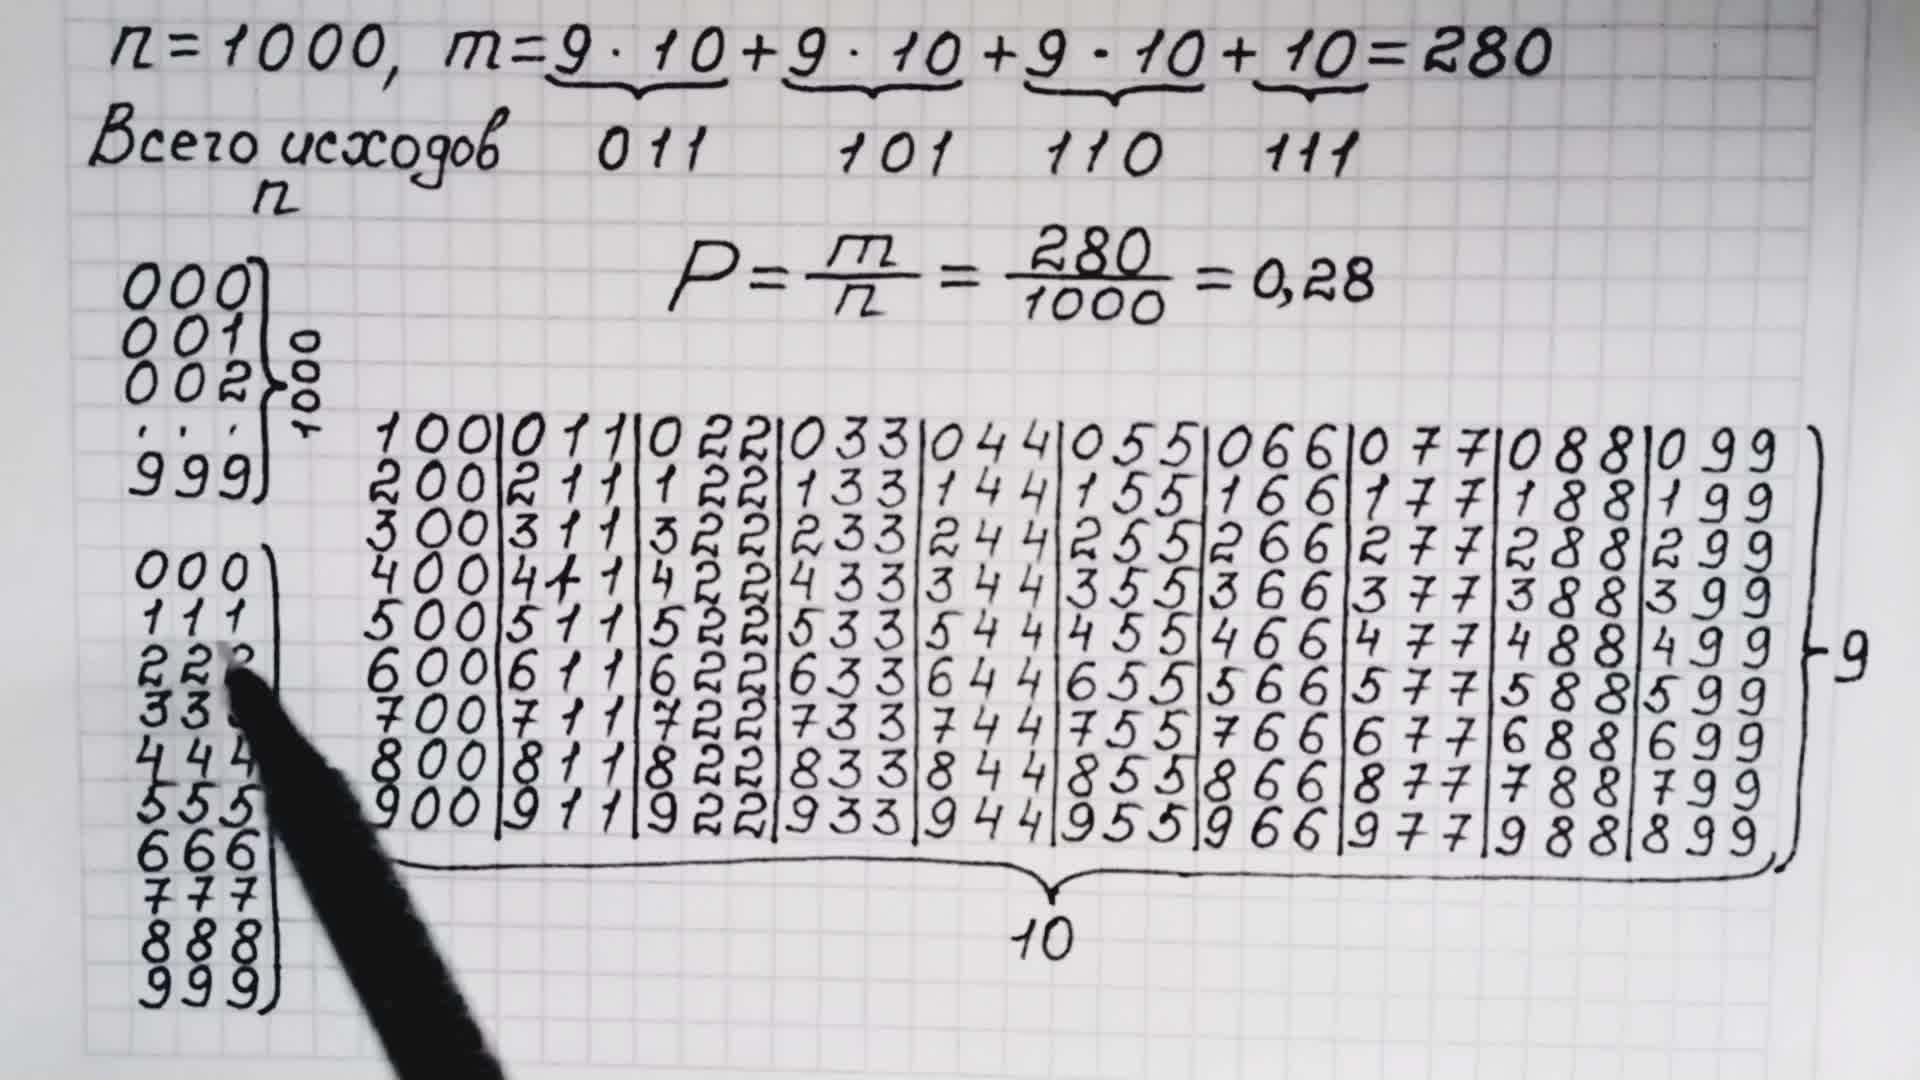 n=1000, m=9·10+9·10+9·10+10=280
Всего исходов 011 101 110 111
n
P = m/n = 280/1000 = 0,28
000
001
002
. . .
999
1000
100|011|022|033|044|055|066|077|088|099
200|211|122|133|144|155|166|177|188|199
300|311|322|233|244|255|266|277|288|299
400|411|422|433|344|355|366|377|388|399
500|511|522|533|544|455|466|477|488|499
600|611|622|633|644|655|566|577|588|599
700|711|722|733|744|755|766|677|688|699
800|811|822|833|844|855|866|877|788|799
900|911|922|933|944|955|966|977|988|899
9
10
000
111
222
33
444
555
666
777
888
999